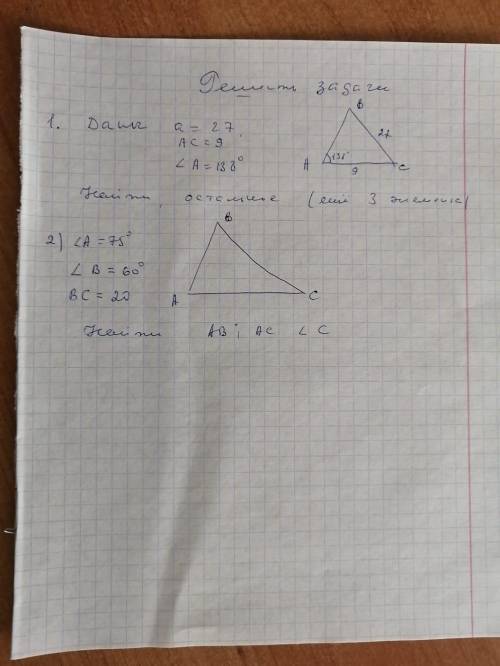 Решить задачи
1. Дано a = 27,
AC = 9
∠A = 138°
B
27
A 138° C
9
Найти остальные (ещё 3 элемента)
2) ∠A = 75°
∠B = 60°
BC = 20
B
A C
Найти AB; AC ∠C